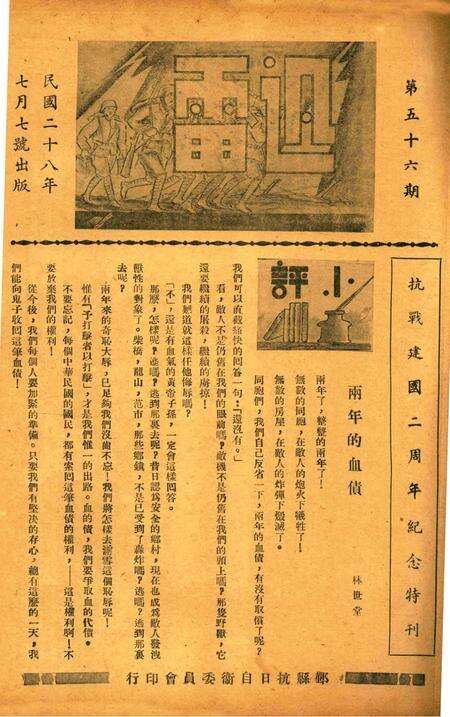 第五十六期
迅雷
民國二十八年
七月七號出版
抗戰建國二周年紀念特刊
小評
兩年的血債
林世堂
兩年了，整整的兩年了！
無數的同胞，在敵人的炮火下犧牲了！
無數的房屋，在敵人的炸彈下燬滅了。
同胞們，我們自己反省一下，兩年的血債，有沒有取償了呢？
我們可以直截痛快的回答一句：「還沒有。」
看，敵人不是仍舊在我們的眼前嗎？敵機不是仍舊在我們的頭上嗎？那隻野獸，它
還要繼續的屠殺，繼續的虜掠！
我們難道就這樣任他侮辱嗎？
「不」，還是有血氣的黃帝子孫，一定會這樣回答。
那麼，怎樣呢？逃嗎？逃到那裏去呢？昔日認爲安全的鄉村，現在也成爲敵人發洩
獸性的對象了。柴橋，龍山，范市，那些鄉鎮，不是已受到了轟炸嗎？逃嗎？逃到那裏
去呢？
兩年來的奇恥大辱，已足夠我們沒齒不忘！我們將怎樣去湔雪這個恥辱呢！
惟有「予打擊者以打擊」，才是我們惟一的出路。血的債，我們要爭取血的代價。
不要忘記，每個中華民國的國民，都有索回這筆血債的權利，——這是權利啊！不
要放棄我們的權利！
從今後，我們每個人要加緊的準備。只要我們有堅决的存心，總有這麼的一天，我
們能向鬼子收回這筆血債！
鄞縣抗日自衛委員會印行